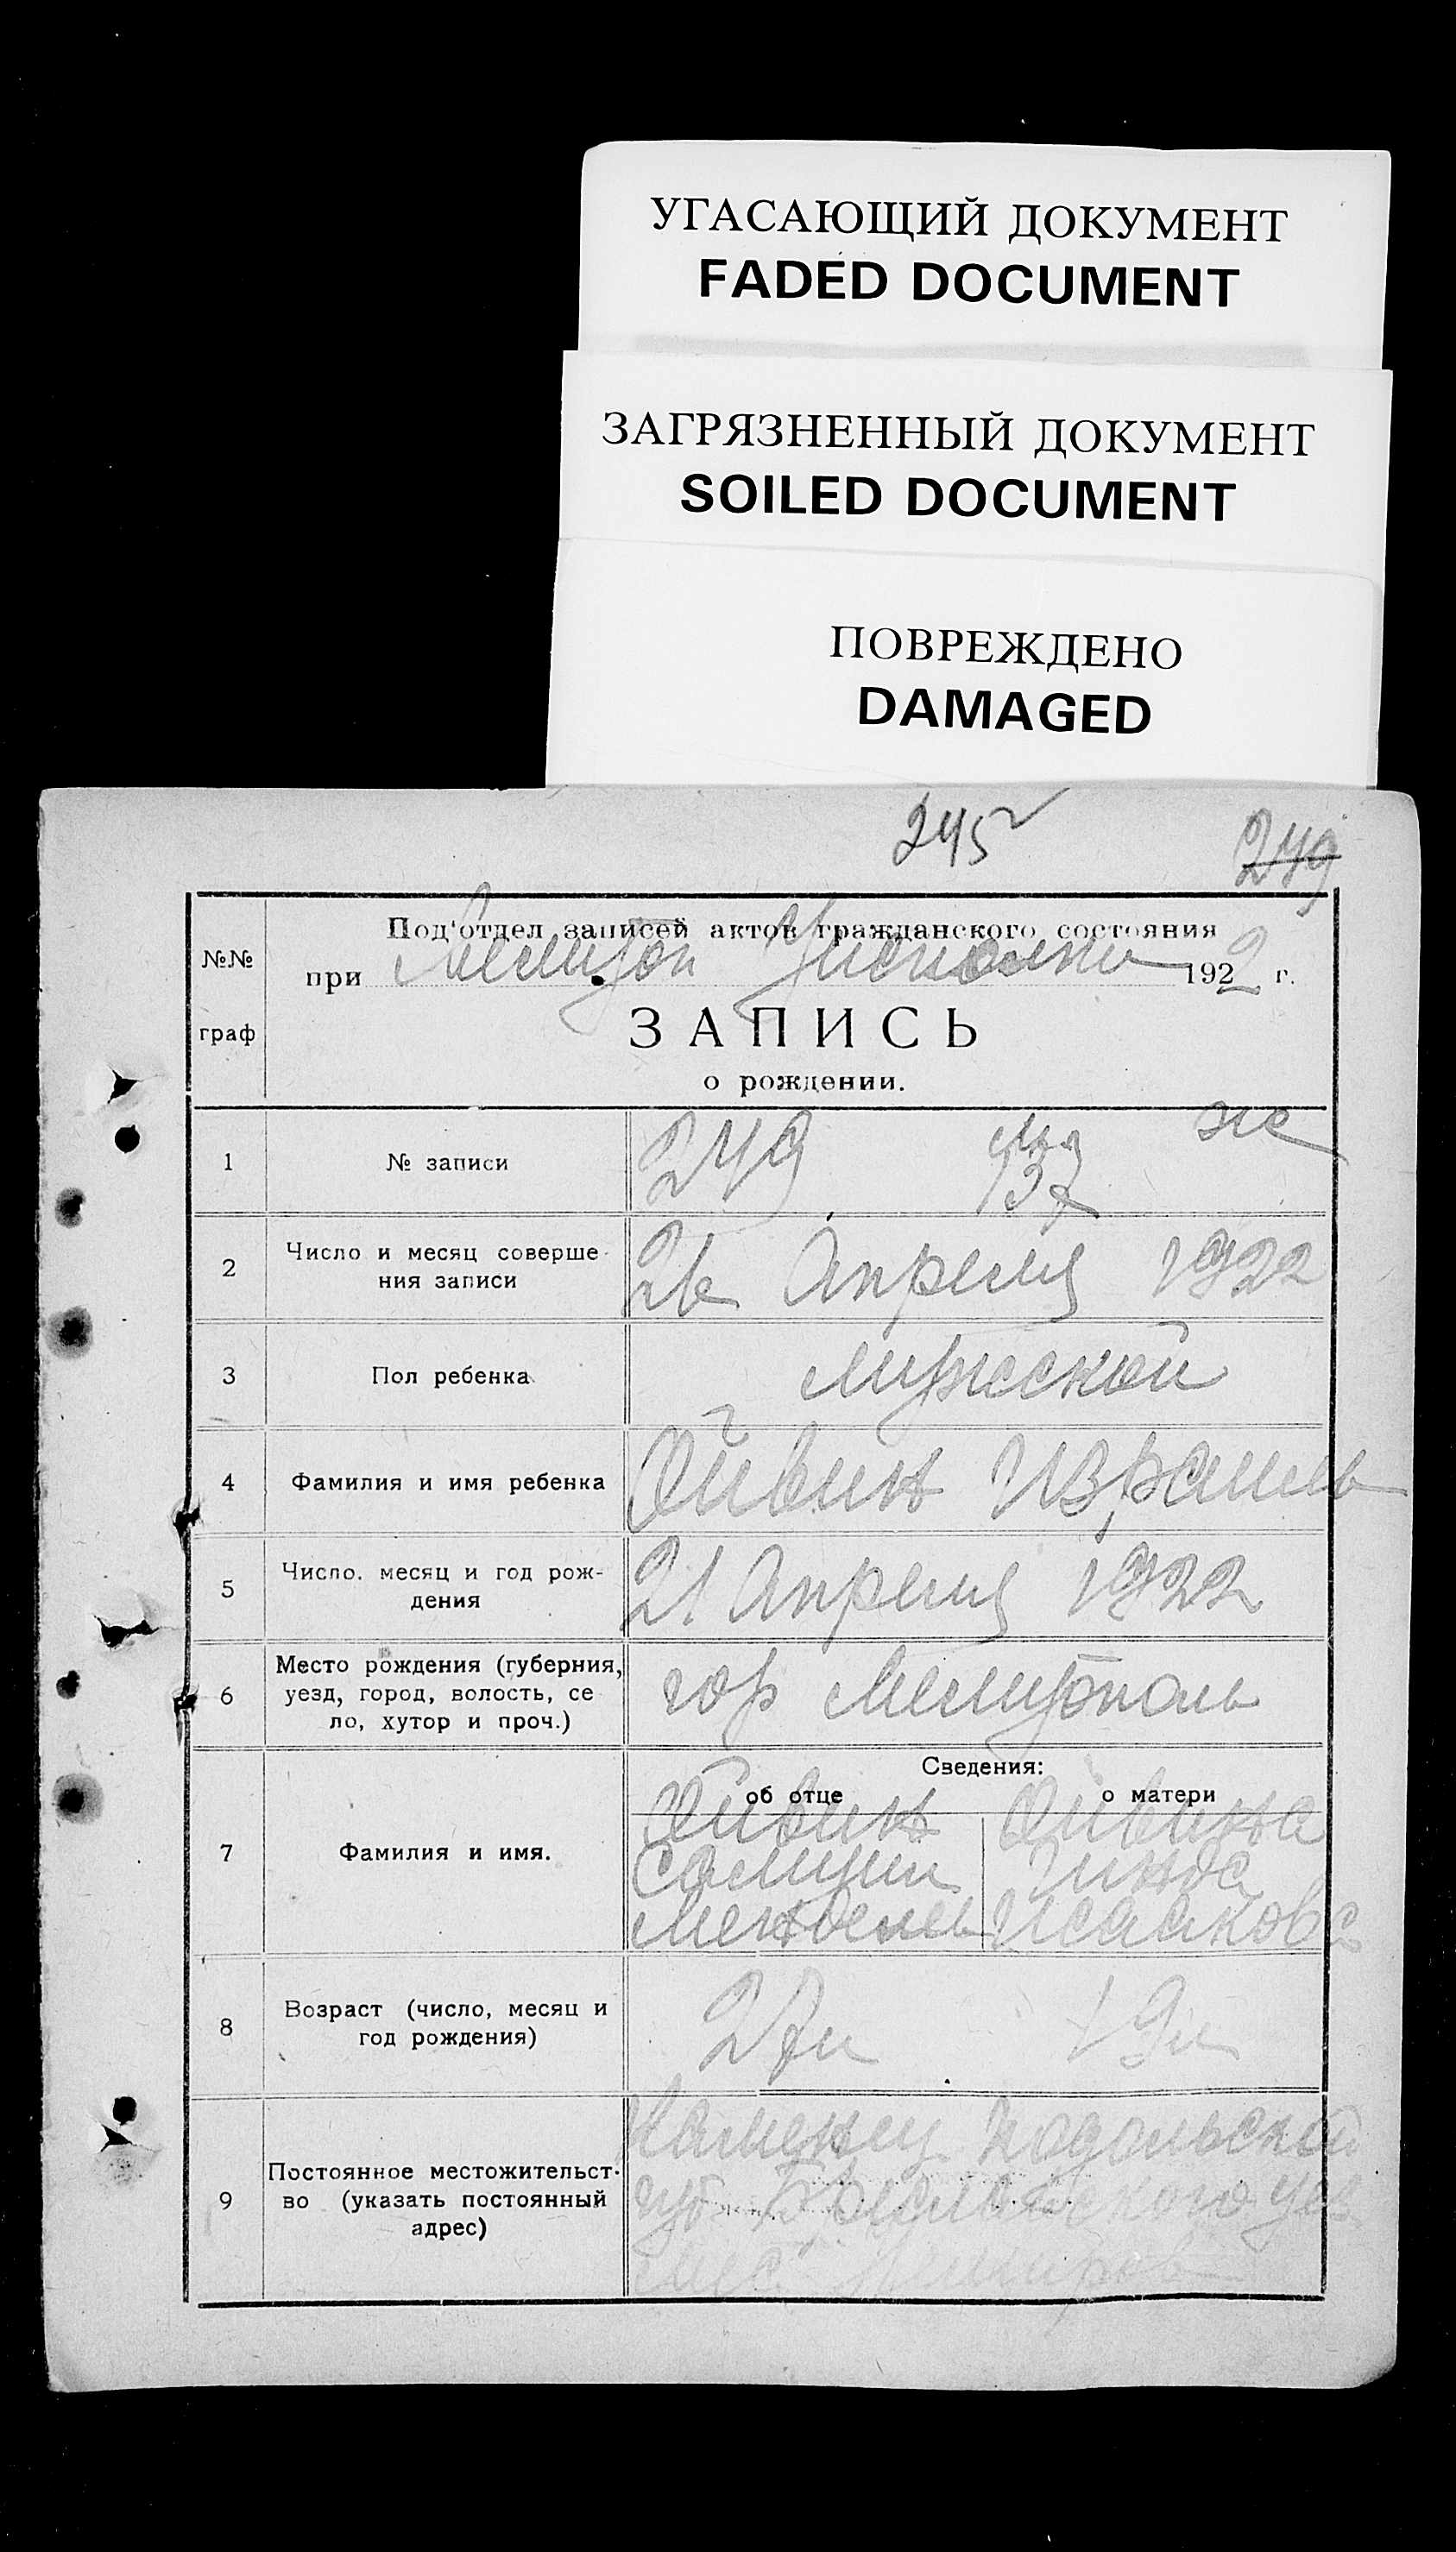 УГАСАЮЩИЙ ДОКУМЕНТ
FADED DOCUMENT
ЗАГРЯЗНЕННЫЙ ДОКУМЕНТ
SOILED DOCUMENT
ПОВРЕЖДЕНО
DAMAGED
245
249
№№ граф
Под'отдел записей актов гражданского состояния
при Мелитоп 1922 г.
ЗАПИСЬ
о рождении.
1 № записи 249 137
2 Число и месяц соверше-
ния записи 26 Апреля 1922
3 Пол ребенка мужской
4 Фамилия и имя ребенка Ойвин Израиль
5 Число. месяц и год рож-
дения 21 Апреля 1922
6 Место рождения (губерния,
уезд, город, волость, се
ло, хутор и проч.) гор Мелитополь
Сведения:
об отце о матери
7 Фамилия и имя. Ойвин Ойвина
Исааковс
8 Возраст (число, месяц и
год рождения) 27 л 19 л
9 Постоянное местожительст-
во (указать постоянный
адрес) Каменец Подольской
губ